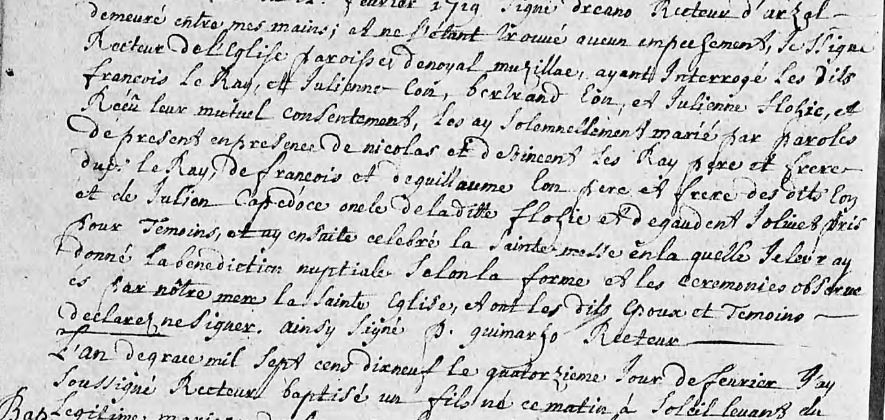 fevrier 1719 signé dreano Recteur d'arzal
demeuré entre mes mains; et ne s'étant trouvé aucun empeschement, Je ssigné
Recteur de l'Eglise paroisse denoyal muzillac, ayant Interrogé les dits
francois le Ray, et Julienne Eon, bertrand Eon, et Julienne flohic, et
Receu leur mutuel consentement, les ay solemnellement marié par paroles
de present en presence de nicolas et de vincent les Ray pere et frere
dud. le Ray, de francois et de guillaume Eon pere et frere des dits Eon
et de Julien Capedoce oncle de laditte flohic et de gaudent Jolivet pris
pour Temoins, et ay ensuite celebré la sainte messe en la quelle Je leur ay
donné la benediction nuptiale selon la forme et les ceremonies observe
és par nôtre mere la sainte Eglise, et ont les dits Epoux et Temoins
declarez ne signer. ainsy signé p. guimarho Recteur
L'an de grace mil sept cens dixneuf le quatorzieme Jour de fevrier J'ay
soussigné Recteur baptisé un fils né ce matin à soleil levant du
Bap Legitime mariage